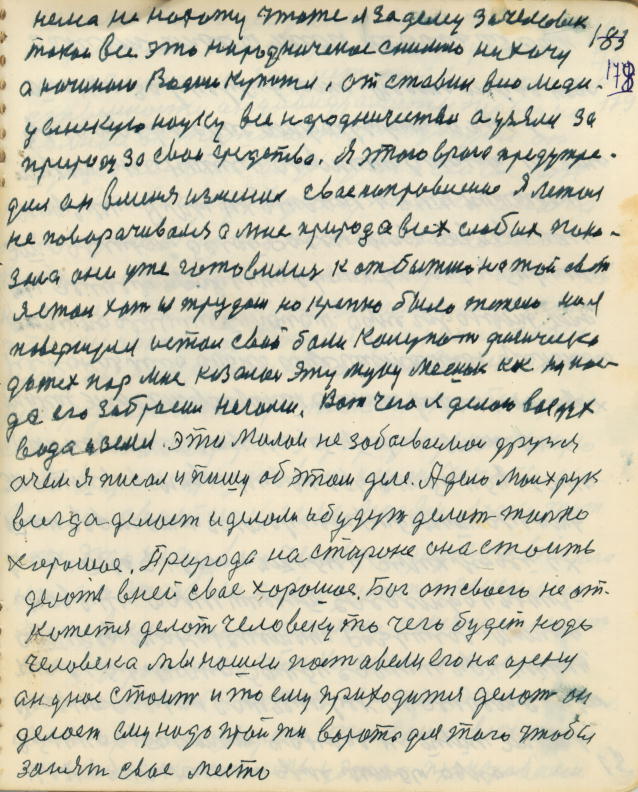 нема не нахожу тоже я за делу за человек 183
такое все это народническое снимаю не хочу
а начинаю водою купати, отставил вию меди- 178
уинскую науку все народничество а узяли за
природу за свои средства. Я этого врага предупре-
дил он вменя изменил свае направление Я летал
не поварачивался а мне природа всех слабых пока-
зала они уже готовились к отбытию на той свет
я стал хоть и трудом но крепко было тяжело но я
повернулся и стал свои боли физически
до тех пор мне казалось эту
да его забрасил ногами. Вот чего я делаю воздух
вода и земля. Эти Малои не забываемои друзья
очем я писал и пишу об этом деле. А дело моих рук
всегда делает и делали и будут делат толко
хорошое. Природа на староне она стоить
делать вней свае хорошое. Бог отсвоего не от-
кажется делат человеку то чего будет надо
человека мы нашли поставели его на арену
он унас стоит и то ему приходится делат он
делает ему надо пройти варота для того чтобы
занят свае место